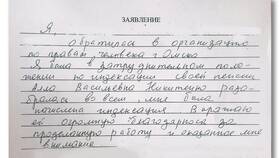 ЗАЯВЛЕНИЕ
Я,
обратилась в организацию
по правам человека г Омска
Я была в затруднительном поло-
жении по индексации своей пенсии
Алла Васильевна Никитенко разо-
бралась во всем мне была
начислена индексация. Выражаю
ей огромную благодарность за
проделанную работу и оказанное мне
внимание